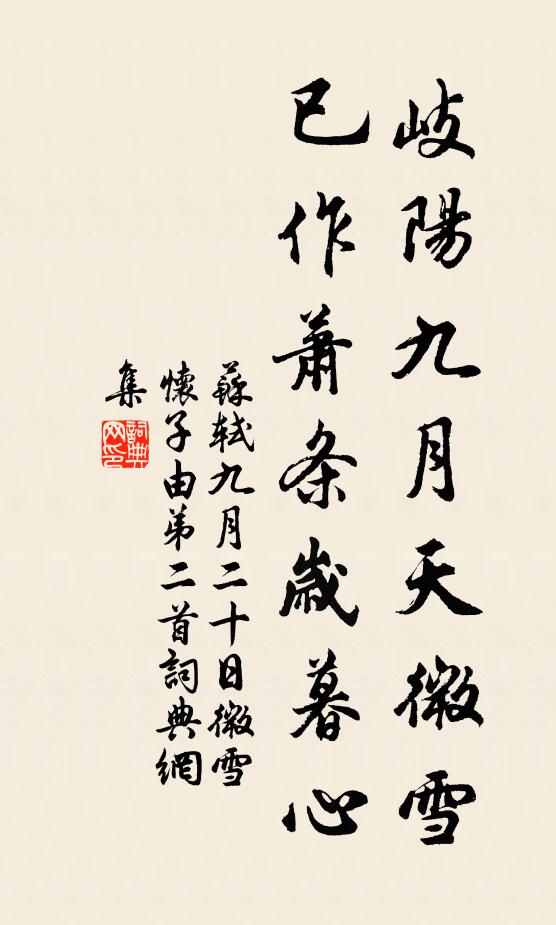 岐陽九月天微雪
已作蕭条歲暮心
蘇軾九月二十日微雪
懷子由弟二首詞典網
集
詞典
网印